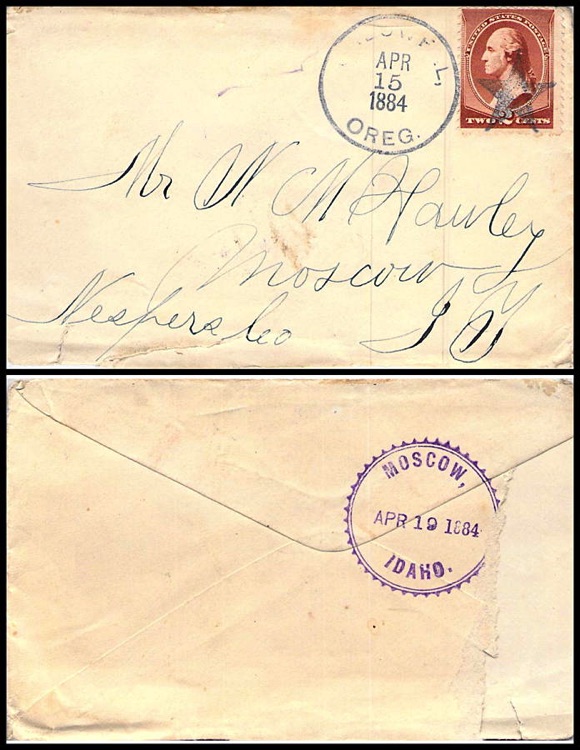 APR
15
1884
OREG.
UNITED STATES POSTAGE
TWO 2 CENTS
Mr W M Hawley
Moscow
Nezperce Co I T
MOSCOW,
APR 19 1884
IDAHO.